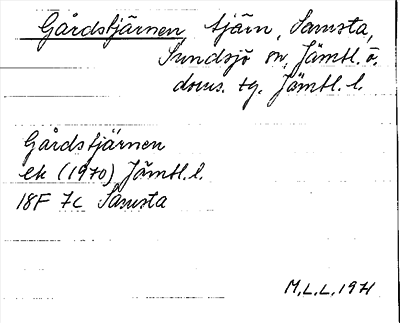 Gårdstjärnen, tjärn, Samsta,
Sundsjö sn, Jämtl. ö.
doms. tg. Jämtl. l.
Gårdstjärnen
ek (1970) Jämtl. l.
18F 7c Samsta
M.L.L. 1971